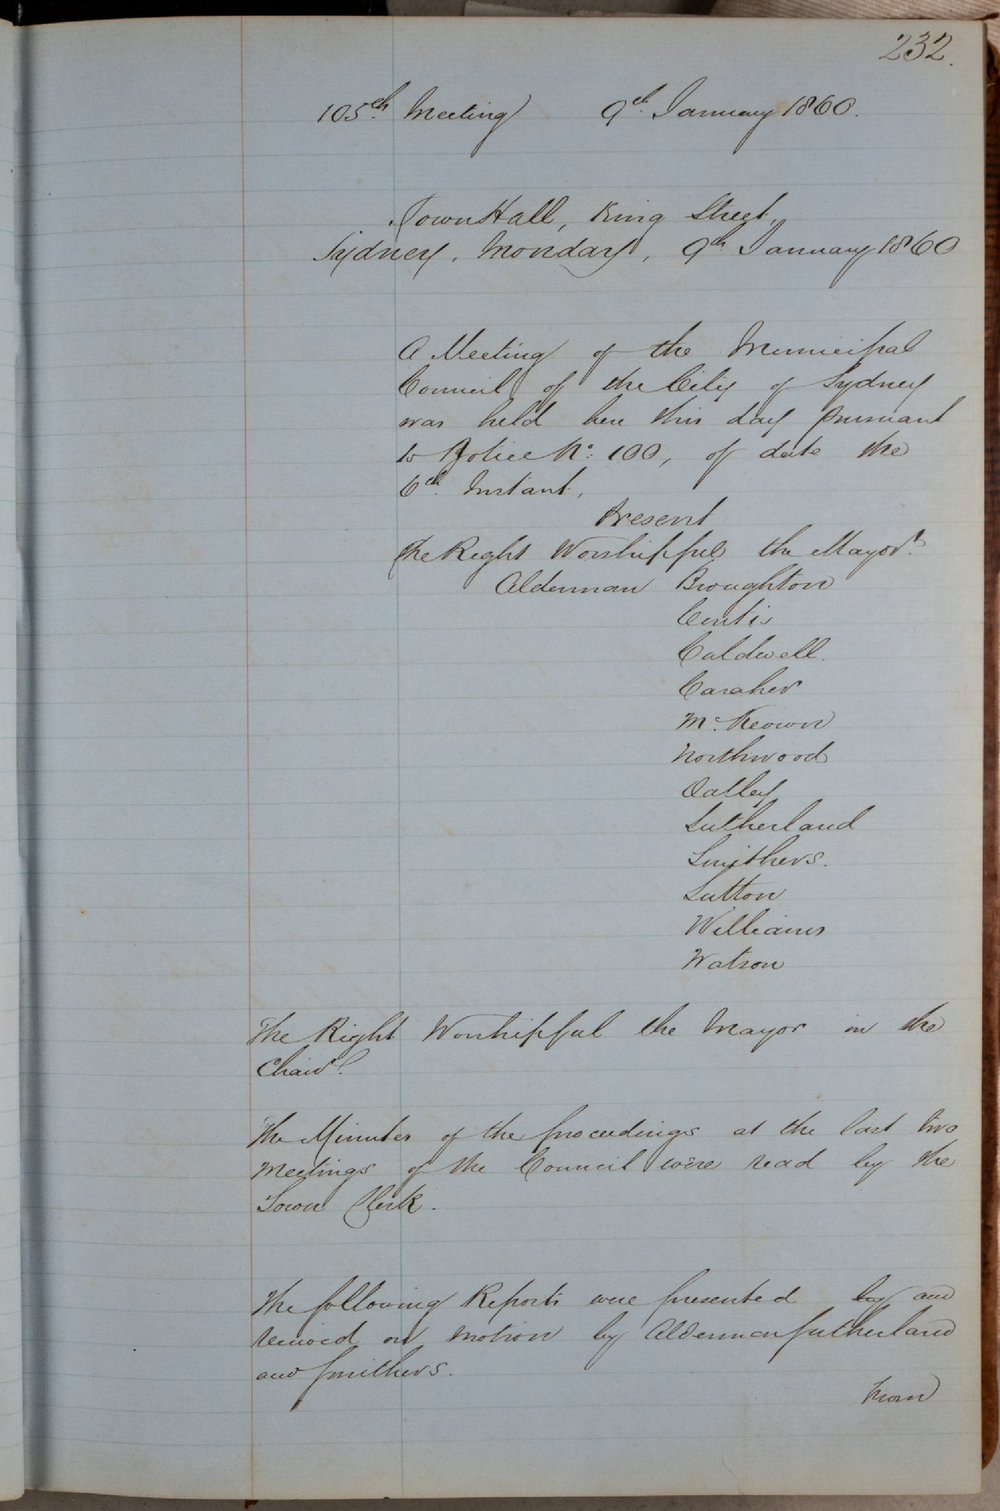 232.
105th. Meeting 9th. January 1860.
Town Hall, King Street,
Sydney, Monday, 9th January 1860
A Meeting of the Municipal
Council of the City of Sydney
was held here this day pursuant
to Notice No. 100, of date the
6th. Instant,
Present
The Right Worshipful the Mayor.
Alderman Broughton
Caldwell.
Caraher
Mc. Keown
Northwood
Oatley
Sutherland
Smithers.
Sutton
Williams
Watson
The Right Worshipful the Mayor in the
Chair.
The Minutes of the proceedings at the last two
Meetings of the Council were read by the
Town Clerk.
The following Reports were presented by and
received on motion by Alderman Sutherland
and Smithers.
From